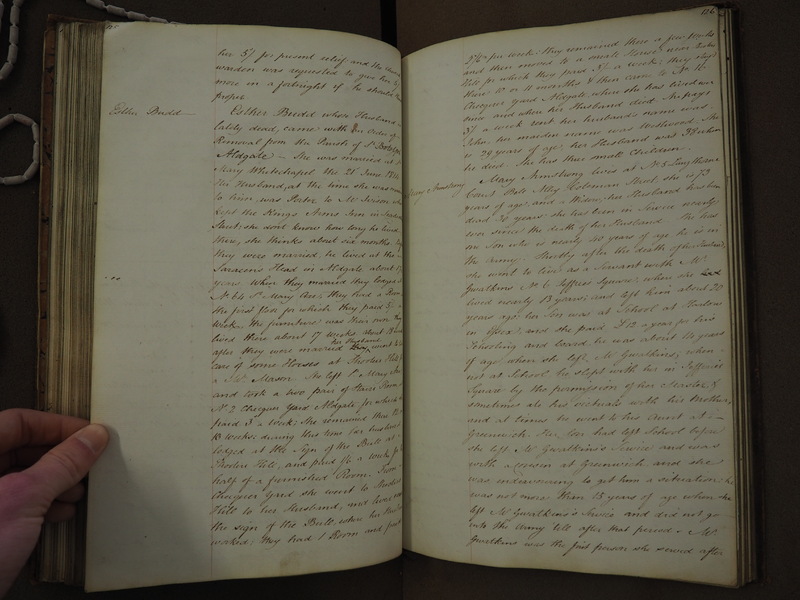 her 5/ for present relief and the Church
warden was requested to give her 5/
more in a fortnight if he should think
proper
Esther Budd
Esther Budd whose Husband
lately died, came with an Order of
Removal from the Parish of St Botolph
Aldgate - She was married at St
Mary Whitechapel the 21 June
The Husband, at the time she was married
to him, was Porter to Mr
kept the Kings Arms Inn in
Street; she don't know how long he lived
there, she thinks about six months
they were married, he lived at the
Saracens Head in Aldgate about
years. When they married they lodged
No 64 St Mary Axe; they had a Room
the first floor for which they paid
Week. the furniture was their own They
lived there about 17 weeks about
after they were married her Husband went to
care of some Horses at Shooters Hill
a Mr Mason. She left St Mary Axe
and took a two pair of Stairs Room
No 2 Chequer Yard Aldgate for which she
paid 3/ a week; She remained there
weeks; during this time her husband
lodged at the Sign of the Bull at
Shooters Hill, and paid a week for
half of a furnished Room. From
Chequer Yard she went to Shooters
Hill to her Husband, and lived
the sign of the Bull, where her Husband
worked: they had 1 Room and paid
116
per week: they remained there a few weeks
and then moved to a small House near Shooters
Hill, for which they paid a week; they staid
there 10 or 11 months & then came to No
Chequer Yard Aldgate where she has lived ever
since and where her Husband died. She pays
3/ a week rent her husband's name was
John, her maiden name was Westwood. She
is 29 years of age, her Husband was 38 when
he died. She has three small Children.
Mary Armstrong
Mary Armstrong lives at No 5
Court Bell Alley Coleman Street she is 73
years of age, and a Widow, her Husband has been
dead 30 years she has been in Service nearly
ever since the death of her Husband. She has
one Son who is nearly 40 years of age he is in
the Army. Shortly after the death of her Husband,
she went to live as a Servant with Mr
Gwatkins No 6 Jeffries Square, where she
lived nearly 13 years; and left him about 20
years ago her Son was at School at
in Essex; and she paid £12 a year for his
Schooling and board, he was about 14 years
of age when she left Mr Gwatkins, when
not at School he slept with her in Jeffries
Square by the permission of her Master &
sometimes ate his victuals with his Brothers,
and at times he went to his Aunt at
Greenwich. Her Son had left School before
she left Mr Gwatkins's Service and was
with a cousin at Greenwich and she
was endeavouring to get him a situation: he
was not more than 15 years of age when she
left Mr Gwatkins's Service and did not go
into the Army till after that period. Mr
Gwatkins was the first person she served after